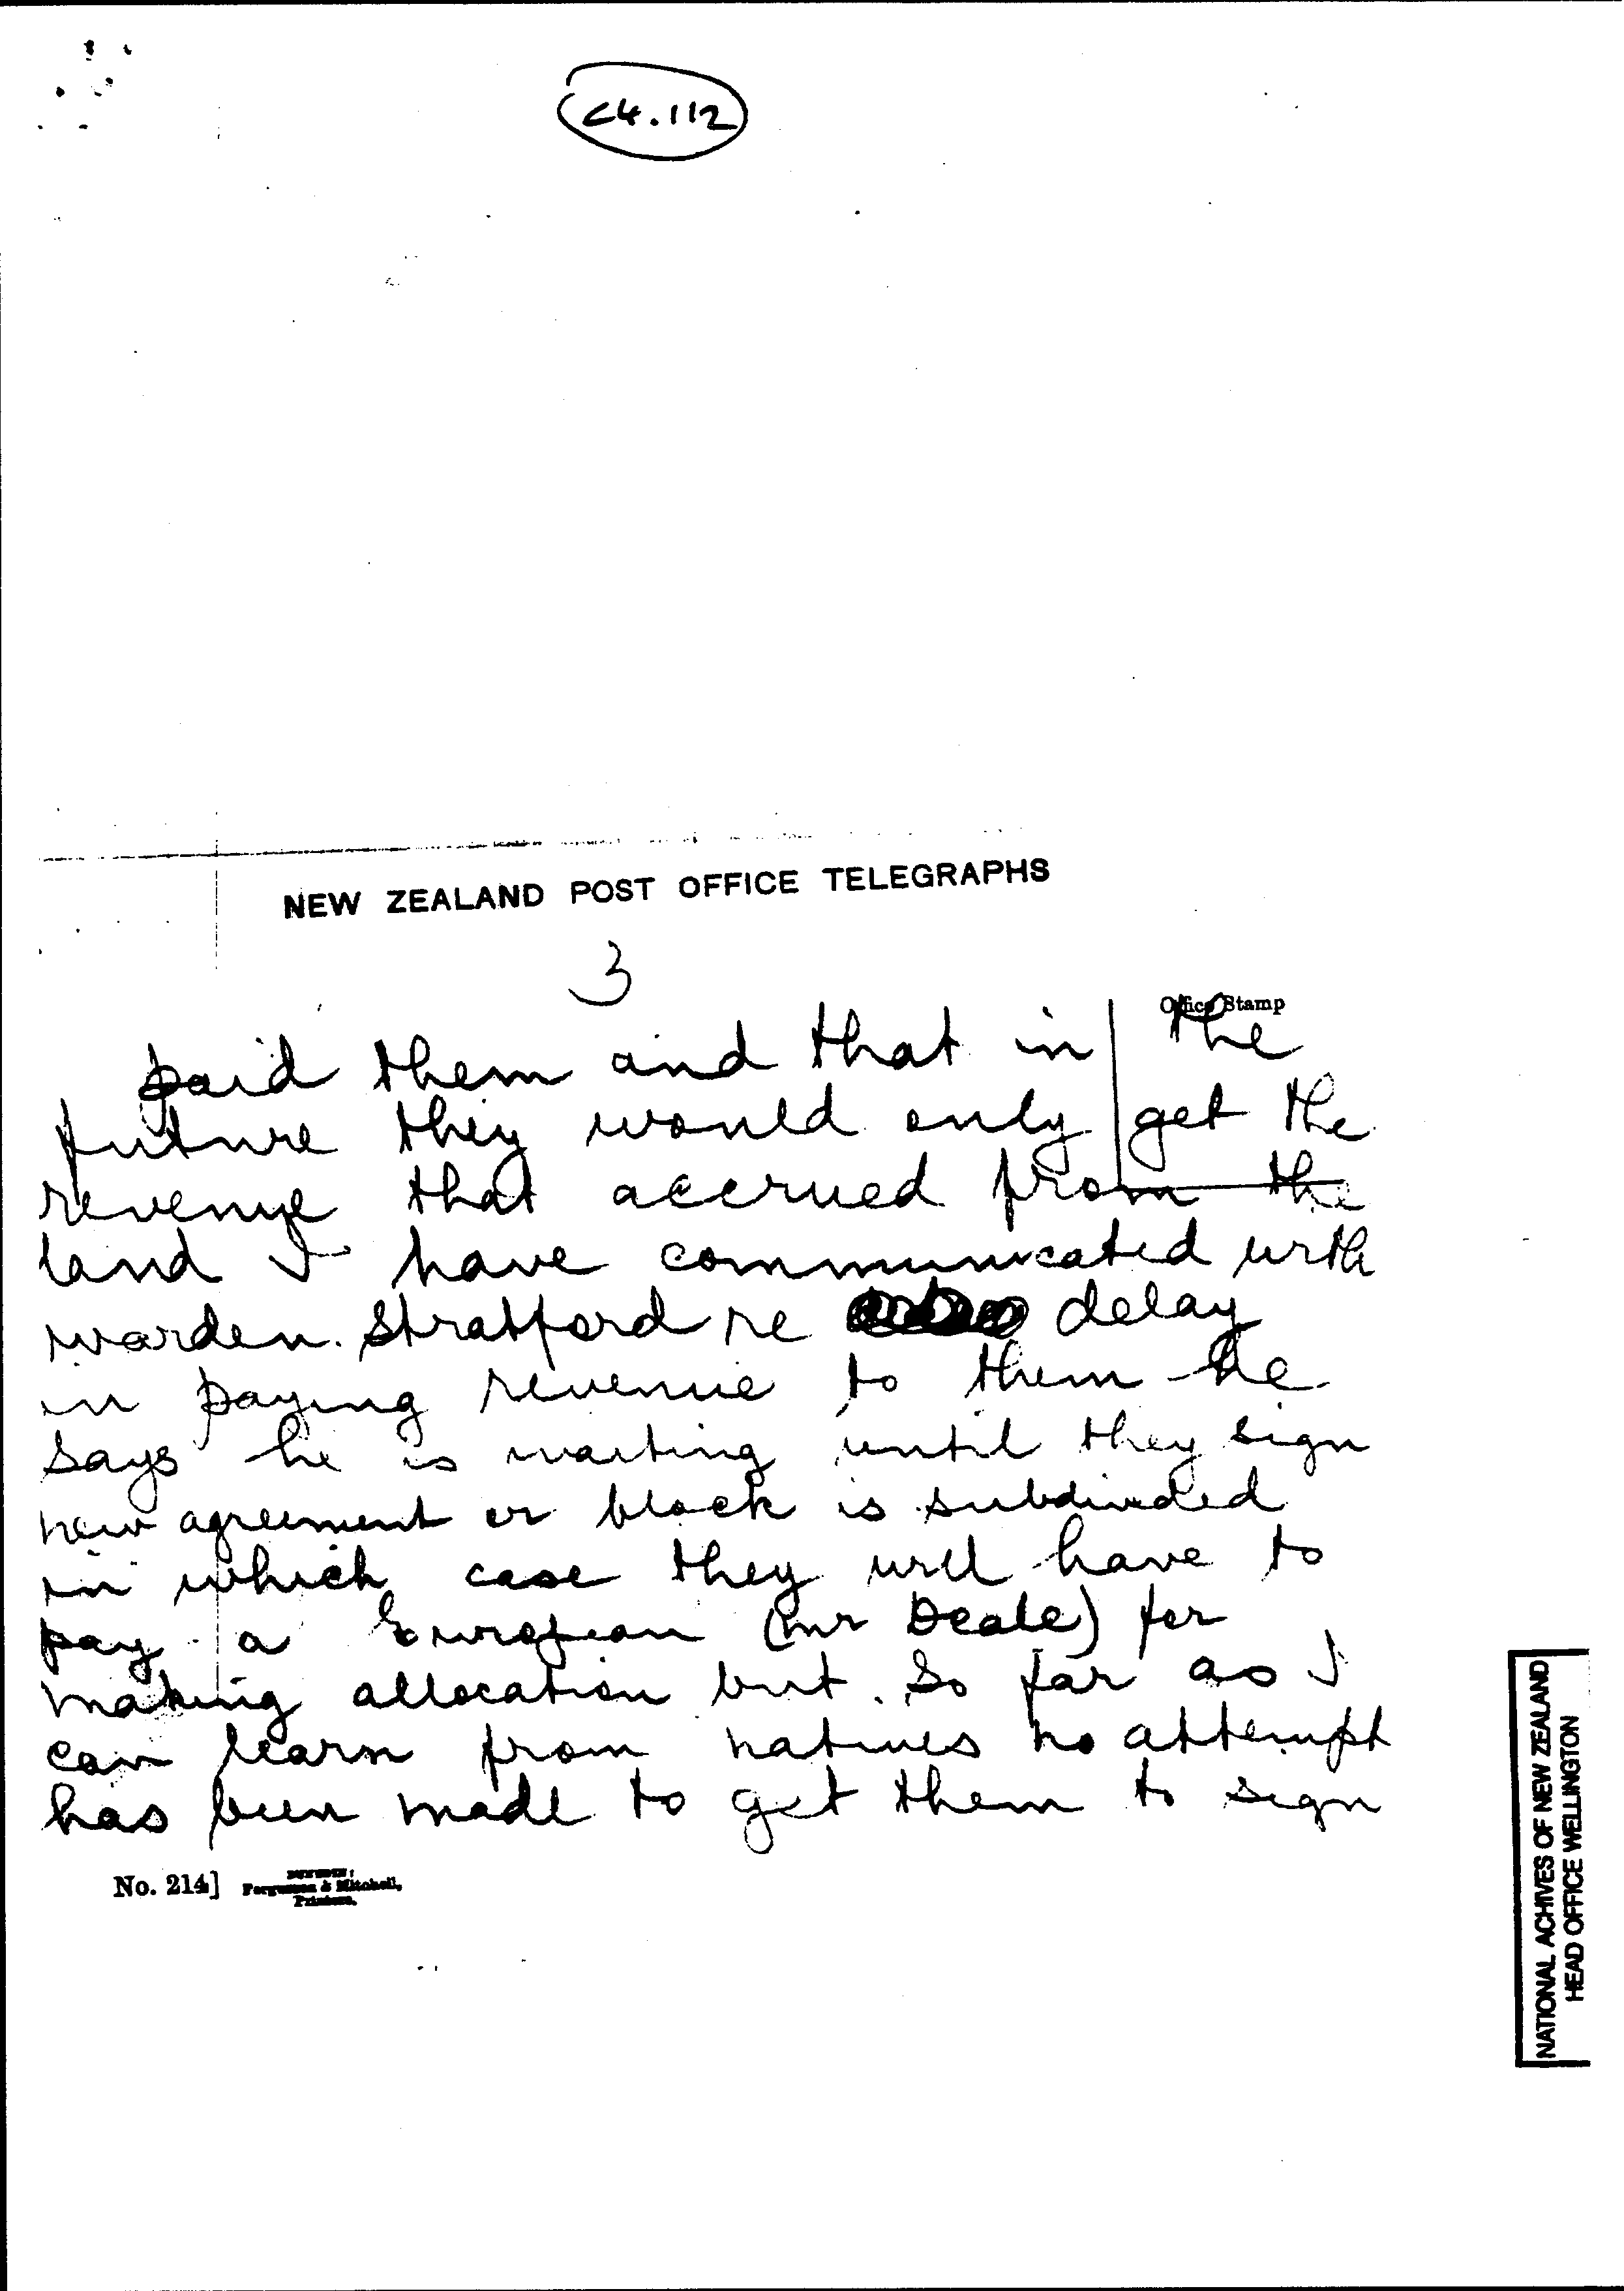 C4.112
NEW ZEALAND POST OFFICE TELEGRAPHS
3
Office Stamp
paid them and that in the
future they would only get the
revenue that accrued from the
land I have communicated with
warden Stratford re delay
in paying revenue to them he
says he is waiting until they sign
new agreement or block is subdivided
in which case they will have to
pay a European (Mr Deale) for
making allocation but. So far as I
can learn from natives no attempt
has been made to get them to sign
No. 214]
Ferguson & Mitchell,
Printers.
NATIONAL ACHIVES OF NEW ZEALAND
HEAD OFFICE WELLINGTON